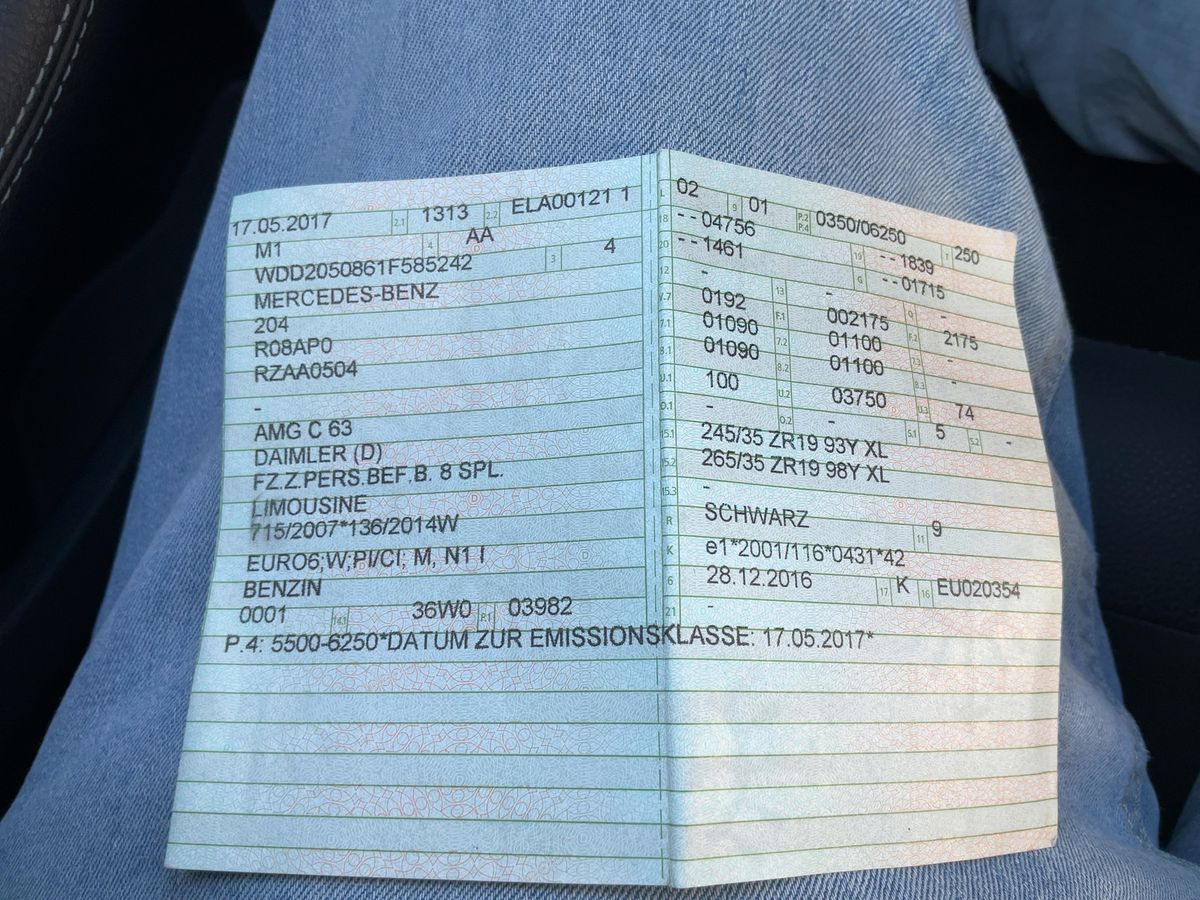 17.05.2017 2.1 1313 2.2 ELA00121 1
M1 4 AA
WDD2050861F585242 3 4
MERCEDES-BENZ
204
R08AP0
RZAA0504
-
AMG C 63
DAIMLER (D)
FZ.Z.PERS.BEF.B. 8 SPL.
LIMOUSINE
715/2007*136/2014W
EURO6;W;PI/CI; M, N1 I
BENZIN
0001 14.1 36W0 P.1 03982
P.4: 5500-6250*DATUM ZUR EMISSIONSKLASSE: 17.05.2017*
L 02 9 01 P.2 P.4 0350/06250 T 250
18 --04756 19 --1839
20 --1461 G --01715
12 - 13 - Q -
V.7 0192 F.1 002175 F.2 2175
7.1 01090 7.2 01100 7.3 -
8.1 01090 8.2 01100 8.3 -
U.1 100 U.2 03750 U.3 74
O.1 - O.2 - S.1 5 S.2 -
15.1 245/35 ZR19 93Y XL
15.2 265/35 ZR19 98Y XL
15.3 -
R SCHWARZ 11 9
K e1*2001/116*0431*42
6 28.12.2016 17 K 16 EU020354
21 -